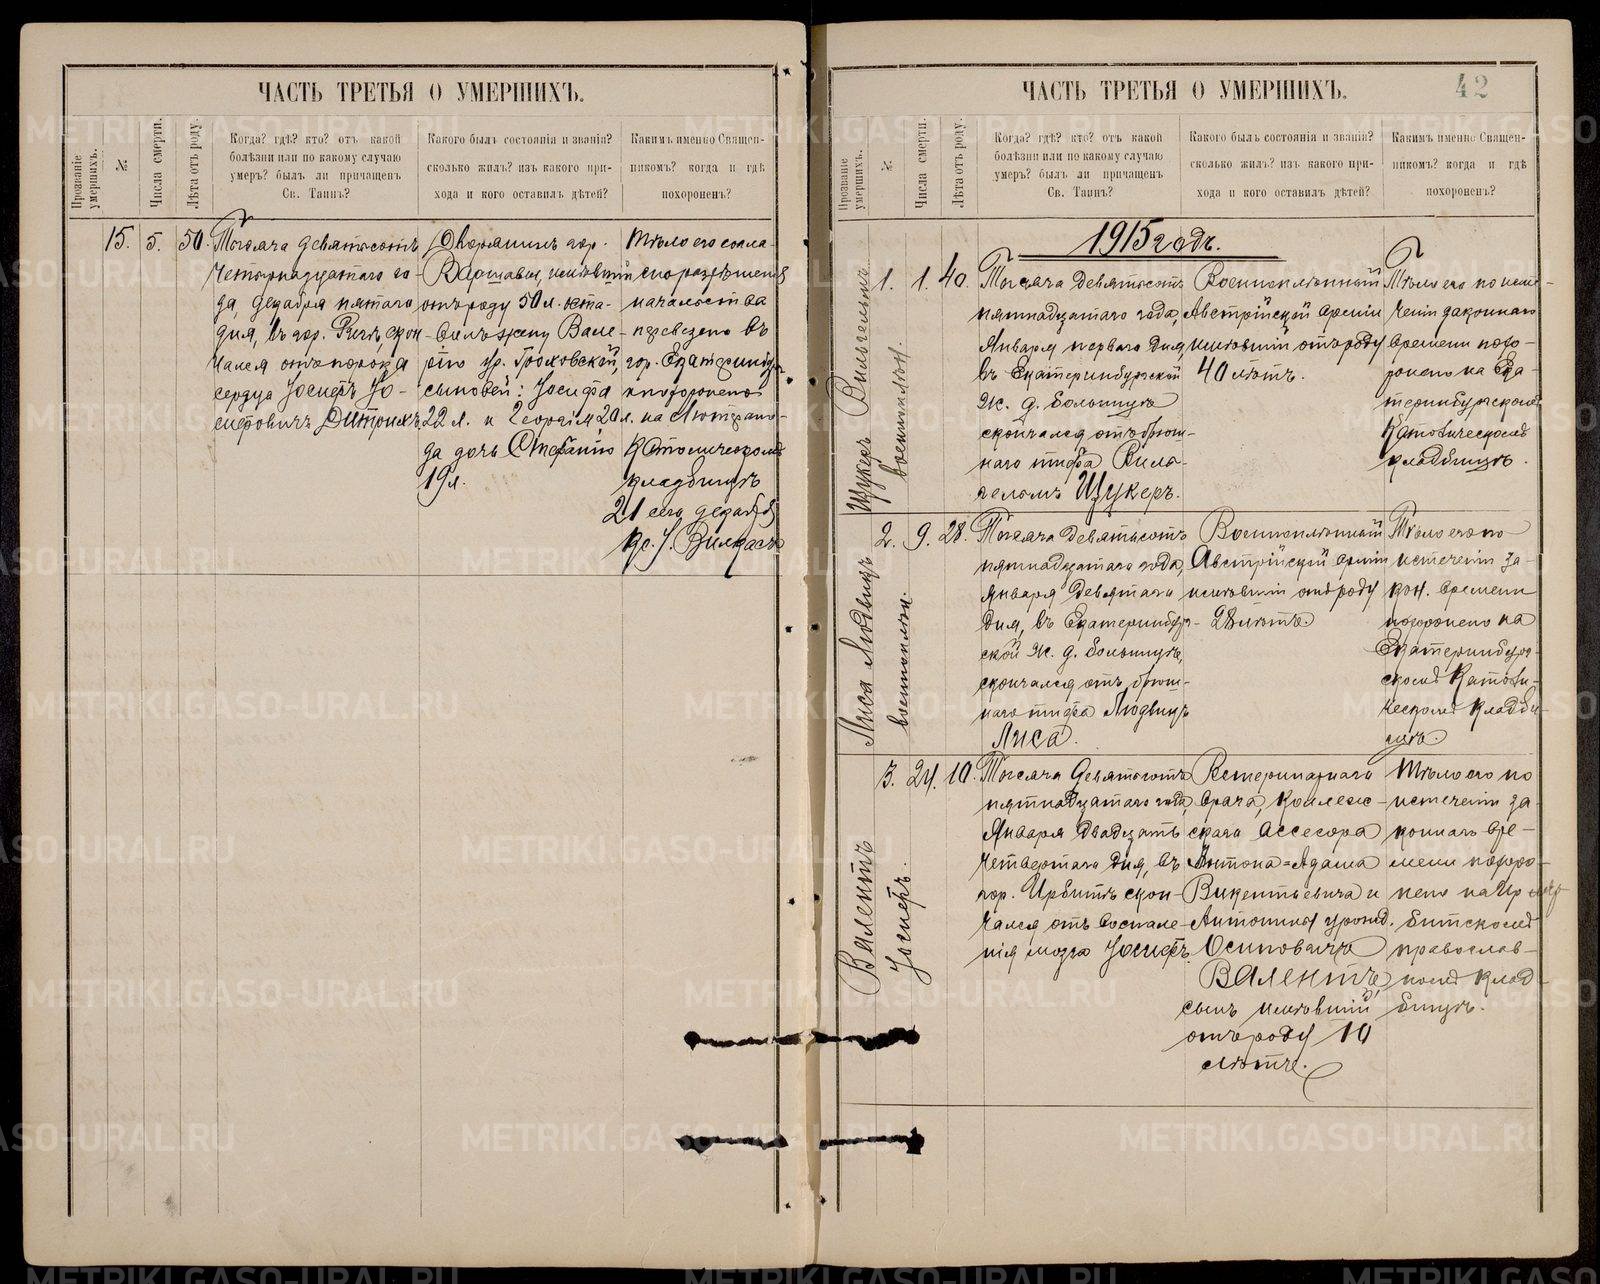 ЧАСТЬ ТРЕТЬЯ О УМЕРШИХЪ.
Прозваніе умершихъ.
№
Числа смерти.
Лѣта отъ роду.
Когда? гдѣ? кто? отъ какой
болѣзни или по какому случаю
умеръ? былъ ли причащенъ
Св. Таинъ?
Какого былъ состоянія и званія?
сколько жилъ? изъ какого при-
хода и кого оставилъ дѣтей?
Какимъ именно Священ-
никомъ? когда и гдѣ
похороненъ?
15.
5.
50.
Тысяча девятьсотъ
четырнадцатаго го-
да, декабря пятаго
дня, въ гор. Ригѣ, скон-
чался отъ порока
сердца Іосифъ Іо-
сифовичъ Дитрихъ
Дворянинъ гор.
Варшавы, имѣвшій
отъ роду 50 л. оста-
вилъ жену Вале-
рію ур. Гроховской,
сыновей: Іосифа
22 л. и Георгія 20 л.
да дочь Стефанію
19 л.
Тѣло его согла-
сно разрѣшенія
начальства
перевезено въ
гор. Екатеринбургъ
и похоронено
на Лютерано-
Католическомъ
кладбищѣ
21 сего декабря
Кс. І. Вилкасъ
ЧАСТЬ ТРЕТЬЯ О УМЕРШИХЪ.
42
Прозваніе умершихъ.
№
Числа смерти.
Лѣта отъ роду.
Когда? гдѣ? кто? отъ какой
болѣзни или по какому случаю
умеръ? былъ ли причащенъ
Св. Таинъ?
Какого былъ состоянія и званія?
сколько жилъ? изъ какого при-
хода и кого оставилъ дѣтей?
Какимъ именно Священ-
никомъ? когда и гдѣ
похороненъ?
1915 годъ.
Щукеръ Вильгельмъ
военноплѣн.
1.
1.
40.
Тысяча девятьсотъ
пятнадцатаго года,
Января перваго дня,
въ Екатеринбургской
ж. д. больницѣ
скончался отъ брюш-
наго тифа Виль-
гельмъ Щукеръ.
Военноплѣнный
Австрійской арміи
имѣвшій отъ роду
40 лѣтъ.
Тѣло его по исте-
ченіи законнаго
времени похо-
ронено на Ека-
теринбургскомъ
Католическомъ
кладбищѣ.
Лиса Людвигъ
военноплѣн.
2.
9.
28.
Тысяча девятьсотъ
пятнадцатаго года,
Января девятаго
дня, въ Екатеринбург-
ской ж. д. больницѣ,
скончался отъ брюш-
наго тифа Людвигъ
Лиса.
Военноплѣнный
Австрійской арміи
имѣвшій отъ роду
28 лѣтъ.
Тѣло его по
истеченіи за-
кон. времени
похоронено на
Екатеринбург-
скомъ Католи-
ческомъ кладби-
щѣ.
Валентъ
Іосифъ.
3.
24.
10.
Тысяча девятьсотъ
пятнадцатаго года,
Января двадцать
четвертаго дня, въ
гор. Ирбитѣ скон-
чался отъ воспале-
нія мозга Іосифъ
Ветеринарнаго
врача, коллеж-
скаго ассесора
Антона=Адама
Викентьевича и
Антонины урожд.
Осиповичъ
Валентъ,
сынъ имѣвшій
отъ роду 10
лѣтъ.
Тѣло его по
истеченіи за-
коннаго вре-
мени похоро-
нено на Ир-
битскомъ
православ-
номъ клад-
бищѣ.
METRIKI.GASO-URAL.RU